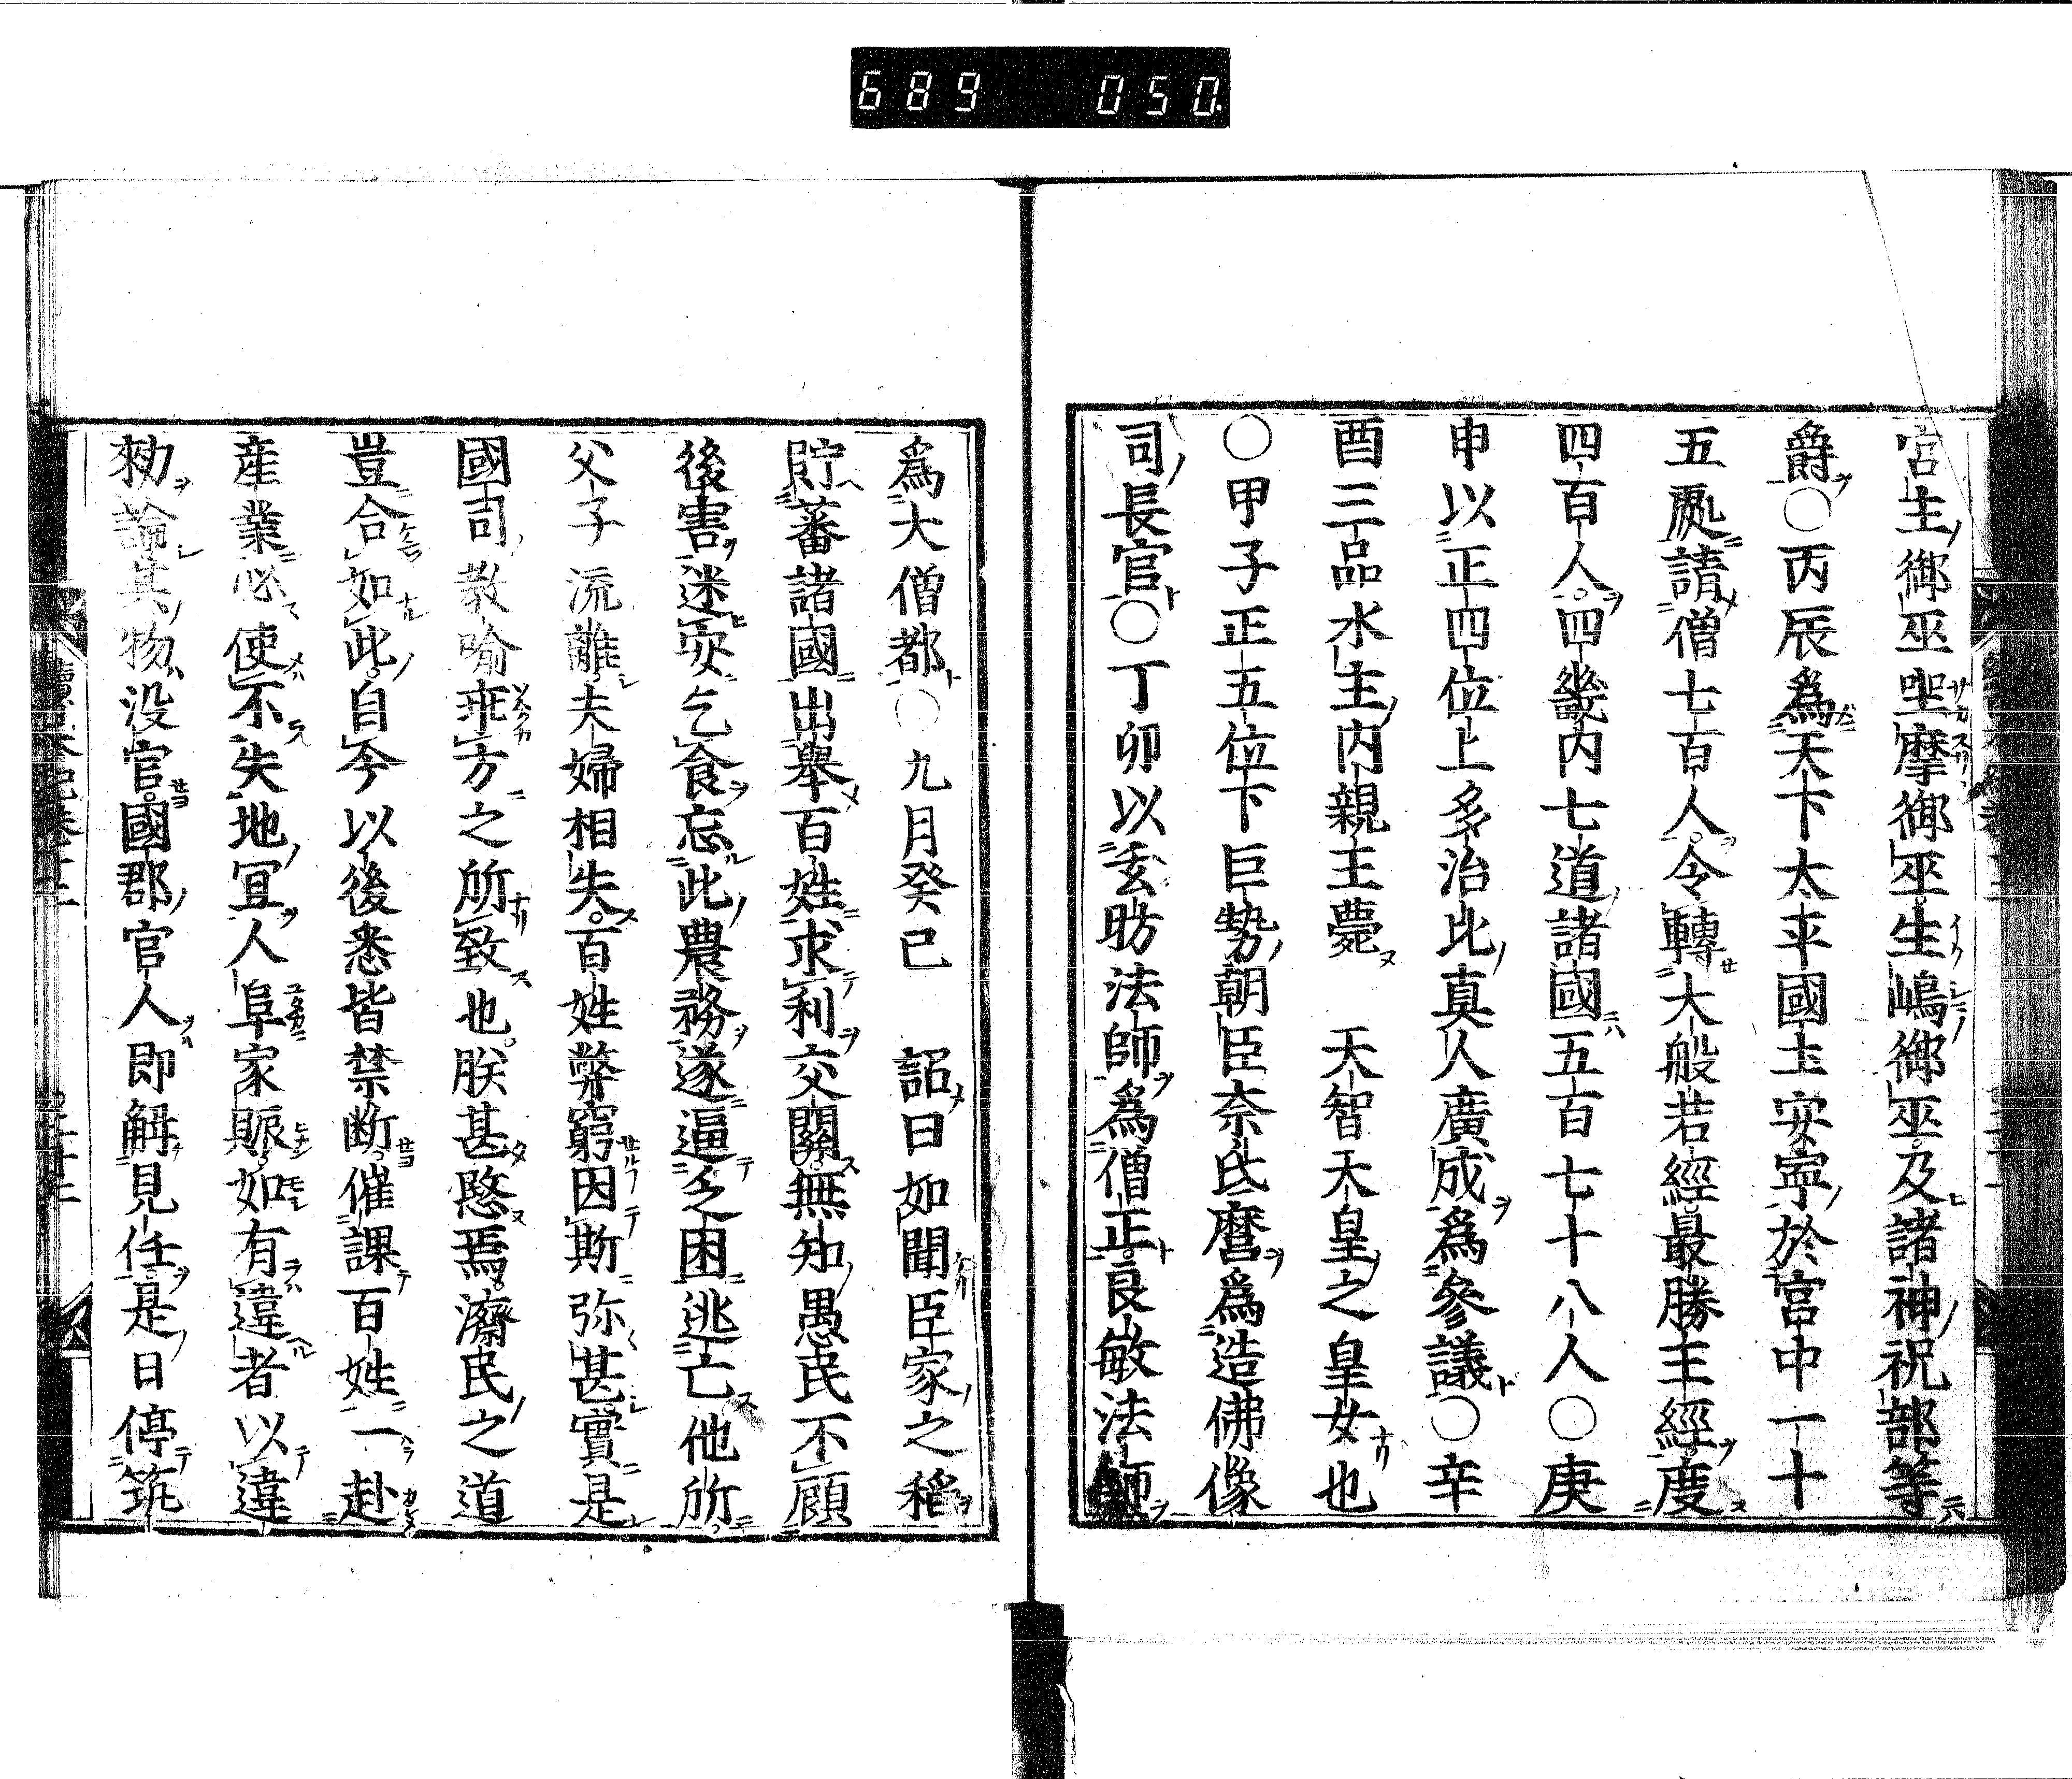 689 050.
宮主御巫坐摩御巫生嶋御巫及諸神祝部等
爵○丙辰為天下太平國土安寧於宮中一十
五處請僧七百人令轉大般若經最勝王經度
四百人四畿内七道諸國五百七十八人○庚
申以正四位上多治比真人廣成為參議○辛
酉三品水主内親王薨　天智天皇之皇女也
○甲子正五位下巨勢朝臣奈氐麿為造佛像
司長官○丁卯以玄昉法師為僧正良敏法師
為大僧都○九月癸巳　詔曰如聞臣家之稲
貯蕃諸國出舉百姓求利交關無知愚民不顧
後害迷安乞食忘此農務遂逼乏困逃亡他所
父子流離夫婦相失百姓弊窮因斯弥甚實是
國司教喻乖方之所致也朕甚愍焉濟民之道
豈合如此自今以後悉皆禁断催課百姓一赴
産業必使不失地冝人阜家賑如有違者以違
勑論其物没官國郡官人即解見任是日停筑